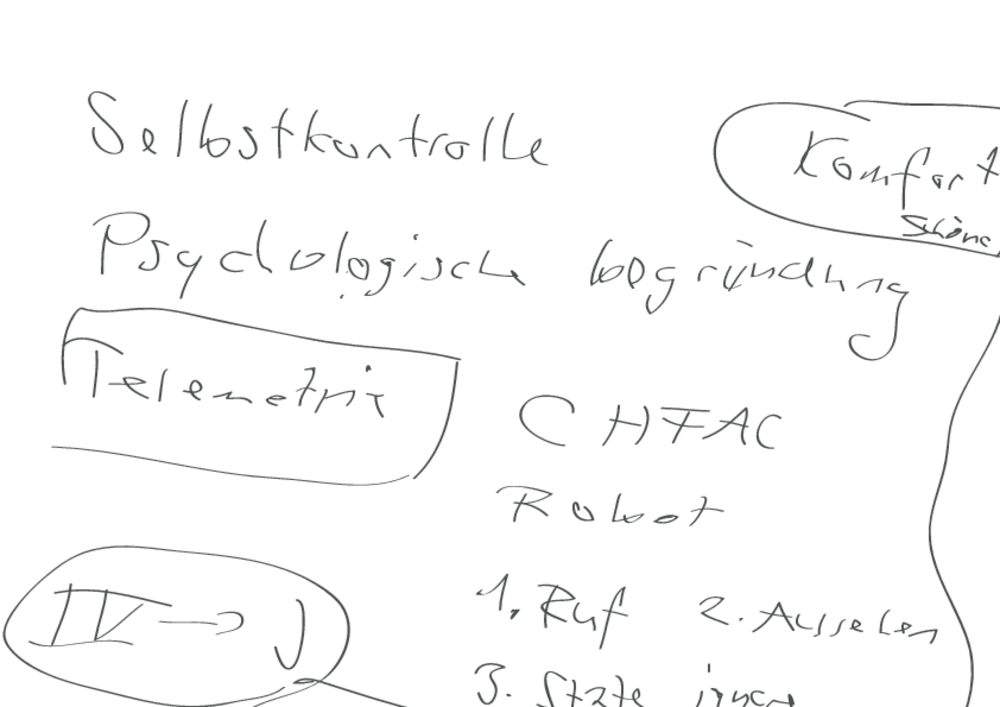 Selbstkontrolle
Komfort
Psychologische begründung
Telemetrie
CHFAC
Robot
IV → J
1. Ruf 2. Aussehen
3. State